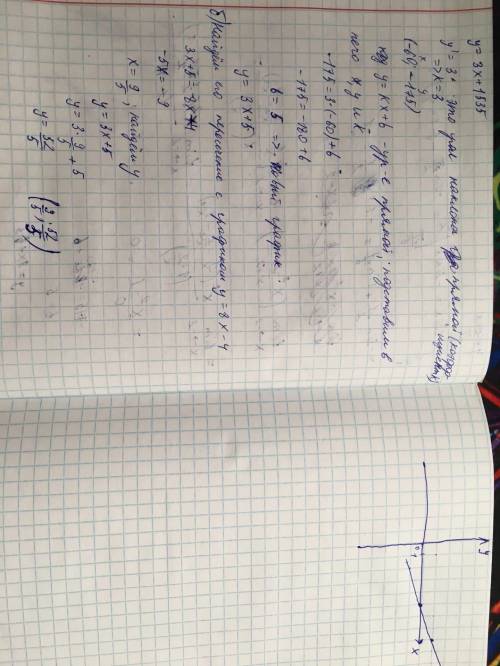 y = 3x + 1535
y' = 3 - это угл наклона прямой (коэфф
=> к = 3
x y
(-60; -175)
y = кx + b - ур-е прямой; подставим в
него x, y и к
-175 = 3·(-60) + b
-175 = -180 + b
b = 5 => новый график:
y = 3x + 5
б) Найдём его пересечение с графиком y = 8x - 4
3x + 5 = 8x - 4
-5x = -9
x = 9/5, найдём y.
y = 3x + 5
y = 3·9/5 + 5
y = 52/5
(9/5; 52/5)
y
0
1
x